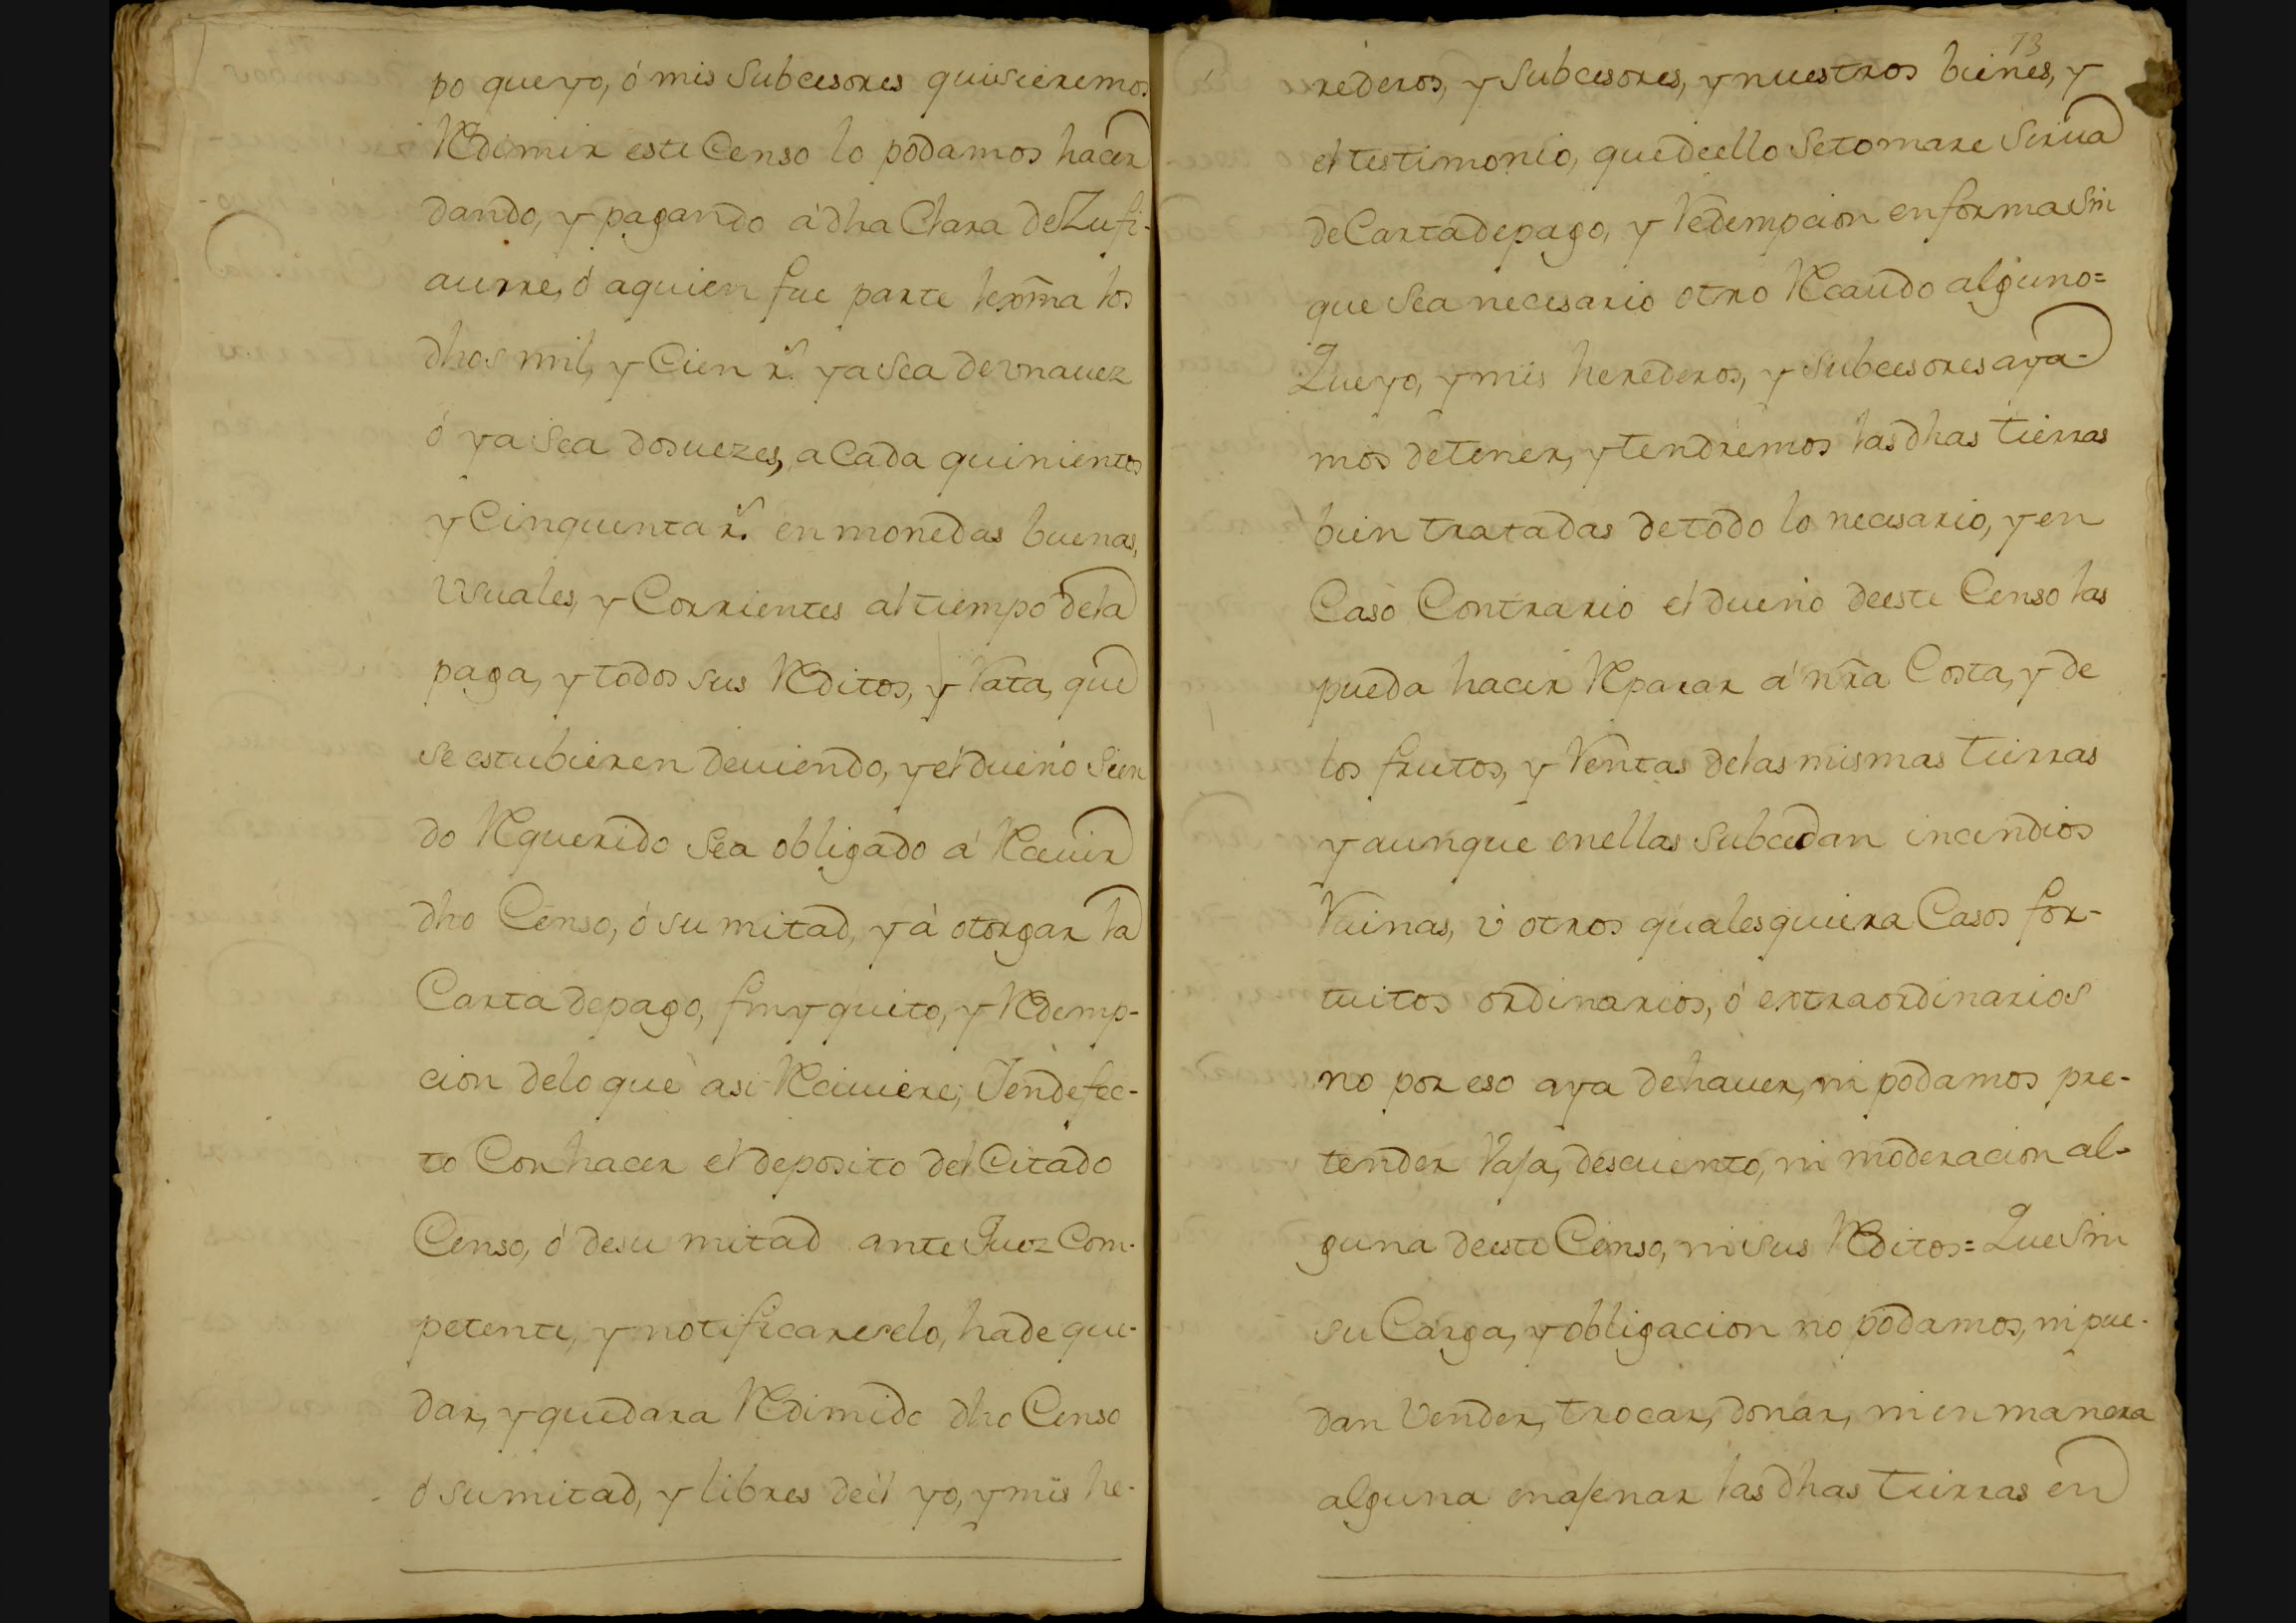 po que yo, ó mis Subcesores quisieremos
Redimir este Censo lo podamos hacer
dando, y pagando á dha Clara de Zufi-
aurre, ó a quien fue parte lexma los
dhos mil, y Cien rs. ya sea de vna uez
ó ya sea dos uezes, a Cada quinientos
y Cinquenta rs. en monedas buenas,
vsuales, y Corrientes al tiempo de la
paga, y todos sus Reditos, y Rata, que
se estubieren deuiendo, y el dueño Sien
do Requerido Sea obligado á Reciuir
dho Censo, ó su mitad, y á otorgar la
Carta de pago, finyquito, y Redemp-
cion de lo que asi Reciuiere; Y en defec-
to Con hacer el deposito del Citado
Censo, ó de su mitad ante Juez Com-
petente, y notificareselo, ha de que-
dar, y quedara Redimido dho Censo
ó su mitad, y libres de él yo, y mis he-
73
rederos, y Subcesores, y nuestros bienes, y
el testimonio, que de ello Se tomare Sirua
de Carta de pago, y Redempcion en forma Sin
que Sea necesario otro Recaudo alguno=
Que yo, y mis herederos, y Subcesores aya-
mos de tener, y tendremos las dhas tierras
bien tratadas de todo lo necesario, y en
Caso Contrario el dueño de este Censo las
pueda hacer Reparar á nra Costa, y de
los frutos, y Rentas de las mismas tierras
y aunque en ellas Subcedan incendios
Ruinas, ú otros qualesquiera Casos for-
tuitos ordinarios, ó extraordinarios
no por eso aya de hauer, ni podamos pre-
tender Vaja, descuento, ni moderacion al-
guna de este Censo, ni sus Reditos= Que Sin
su Carga, y obligacion no podamos, ni pue-
dan Vender, trocar, donar, ni en manera
alguna enajenar las dhas tierras en